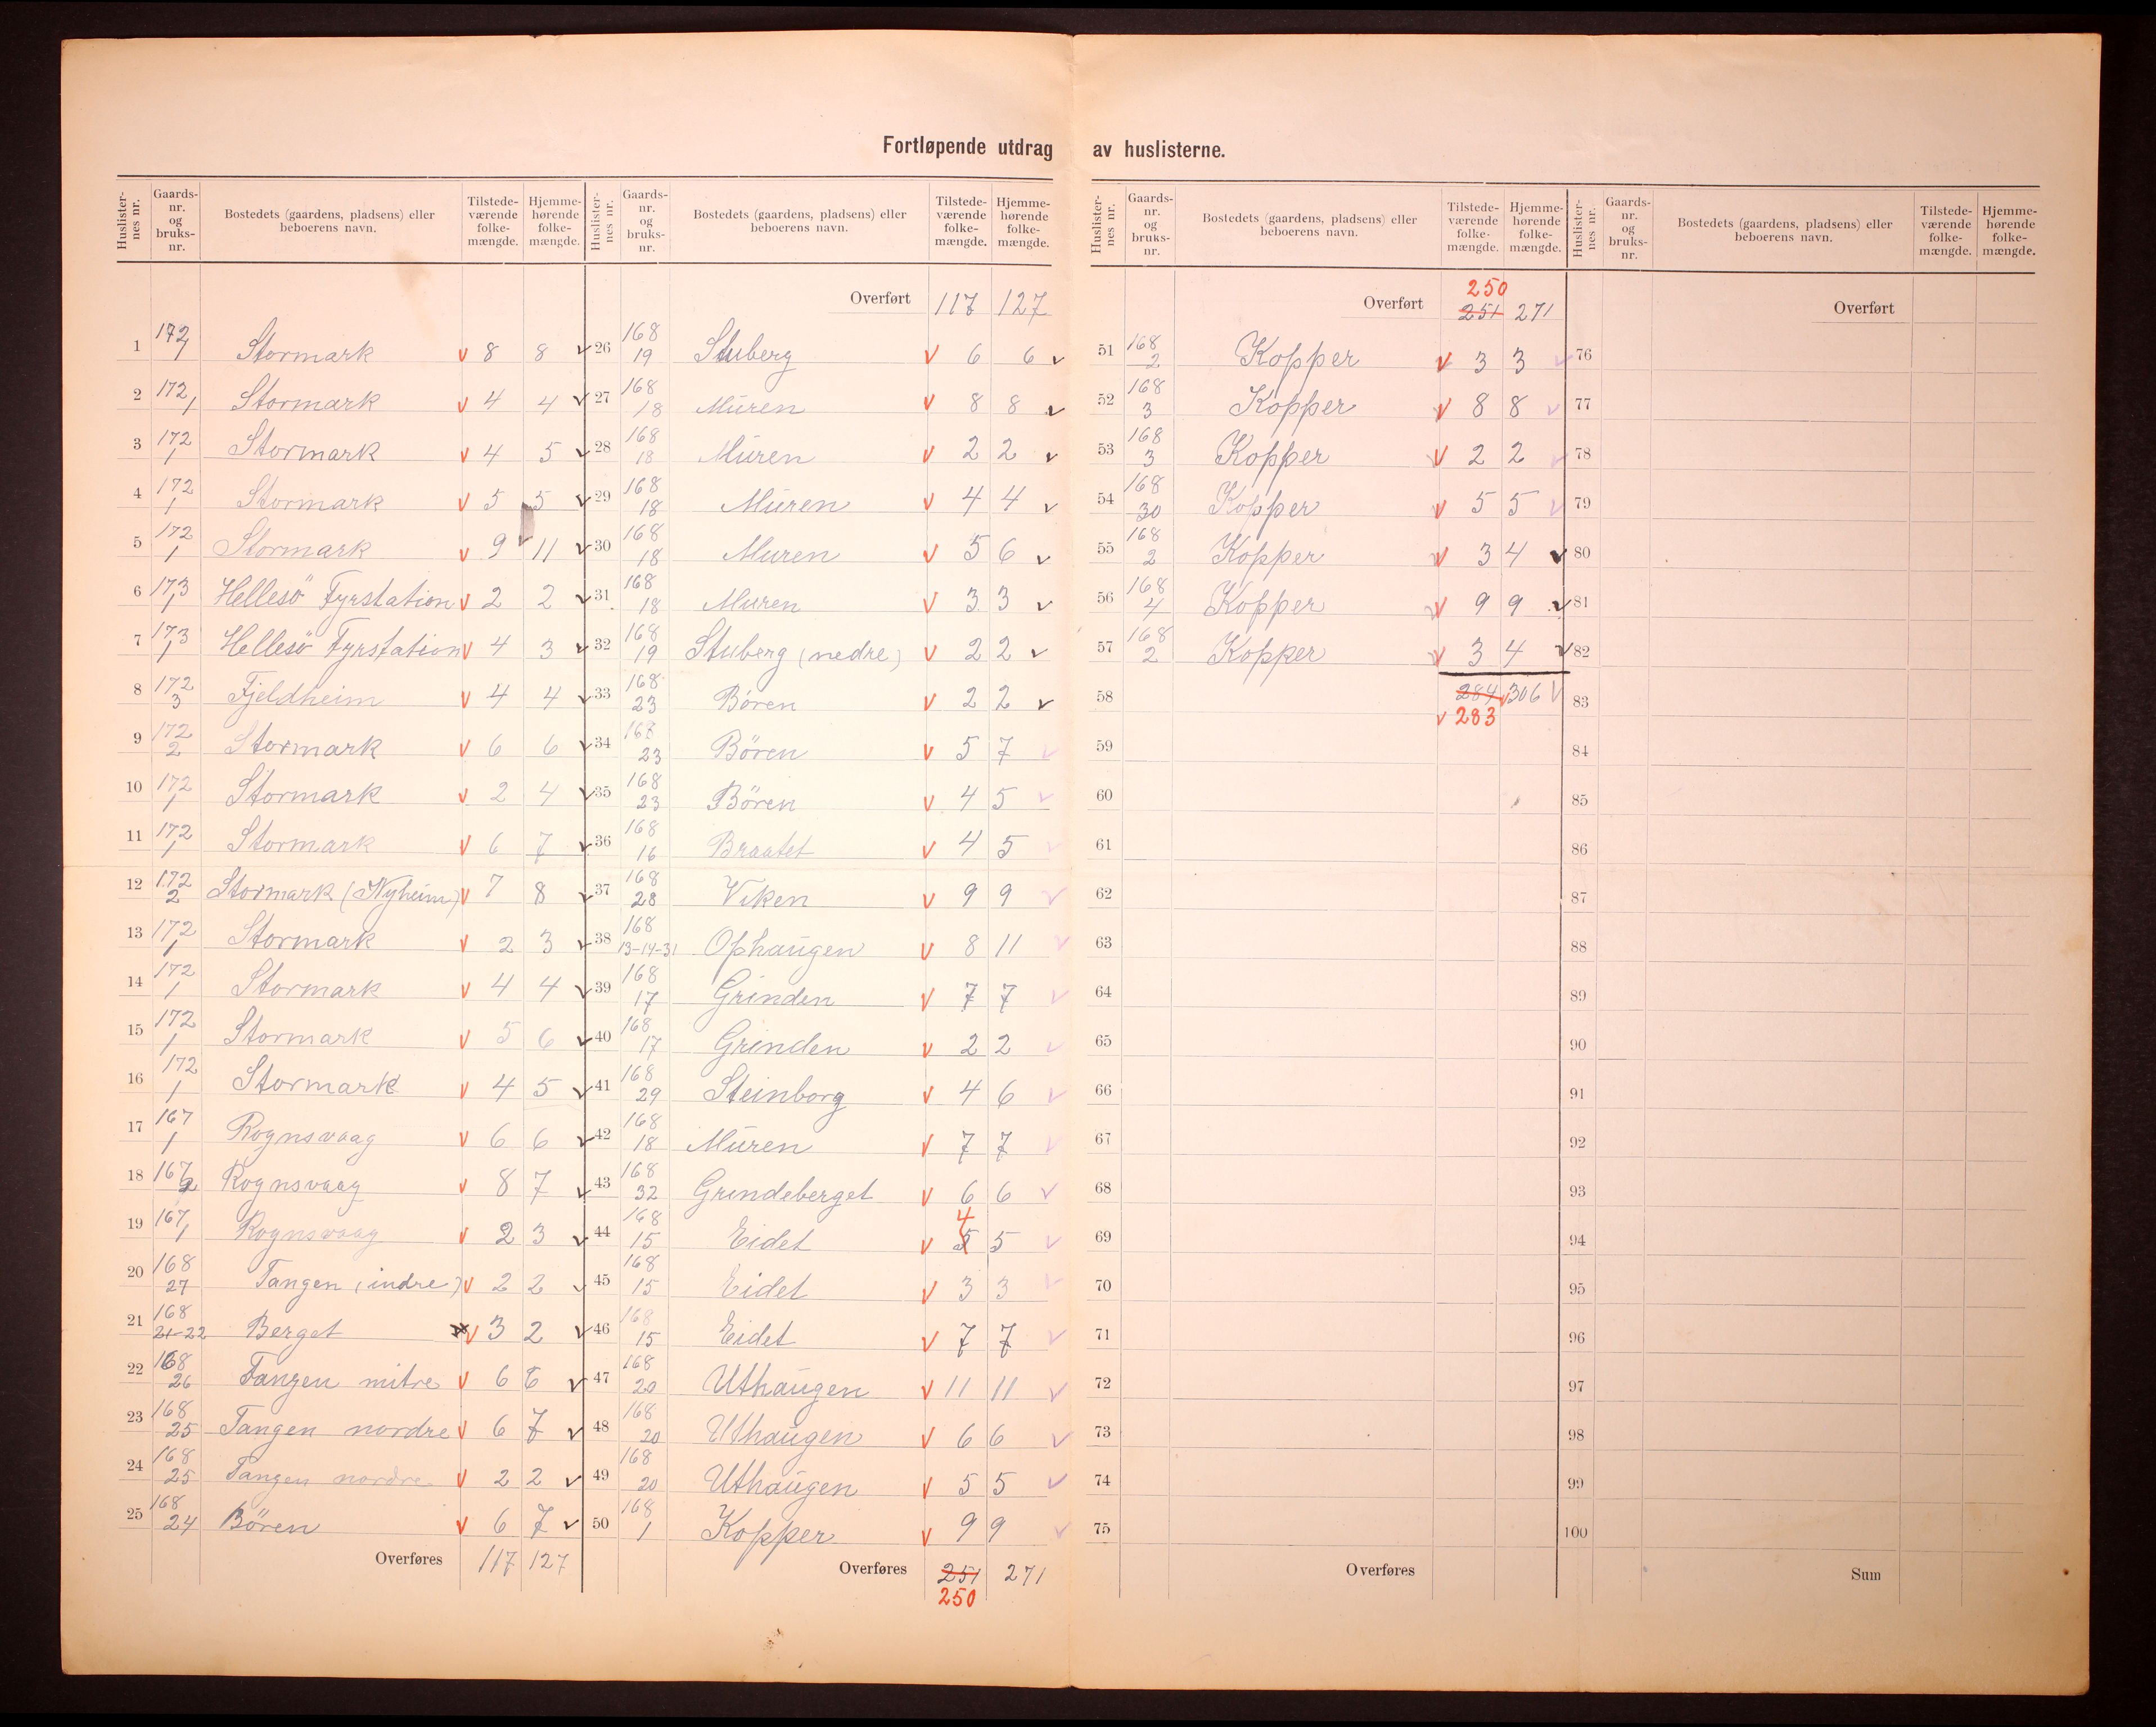 Fortløpende utdrag av huslisterne.
Huslisternes nr. | Gaards-nr. og bruks-nr. | Bostedets (gaardens, pladsens) eller beboerens navn. | Tilstedeværende folkemængde. | Hjemmehørende folkemængde.
1 172/1 Stormark v 8 8 v
2 172/1 Stormark v 4 4 v
3 172/1 Stormark v 4 5 v
4 172/1 Stormark v 5 5 v
5 172/1 Stormark v 9 11 v
6 173/1 Hellesö Fyrstation v 2 2 v
7 173/1 Hellesö Fyrstation v 4 3 v
8 172/3 Fjeldheim v 4 4 v
9 172/2 Stormark v 6 6 v
10 172/1 Stormark v 2 4 v
11 172/1 Stormark v 6 7 v
12 172/2 Stormark (Nyheim) v 7 8 v
13 172/1 Stormark v 2 3 v
14 172/1 Stormark v 4 4 v
15 172/1 Stormark v 5 6 v
16 172/1 Stormark v 4 5 v
17 167/1 Rognsvaag v 6 6 v
18 167/2 Rognsvaag v 8 7 v
19 167/1 Rognsvaag v 2 3 v
20 168/27 Tangen (indre) v 2 2 v
21 168/21-22 Berget v 3 2 v
22 168/26 Tangen mitre v 6 6 v
23 168/25 Tangen nordre v 6 7 v
24 168/25 Tangen nordre v 2 2 v
25 168/24 Bören v 6 7 v
Overføres 117 127
Huslisternes nr. | Gaards-nr. og bruks-nr. | Bostedets (gaardens, pladsens) eller beboerens navn. | Tilstedeværende folkemængde. | Hjemmehørende folkemængde.
Overført 117 127
26 168/19 Stuberg v 6 6 v
27 168/18 Muren v 8 8 v
28 168/18 Muren v 2 2 v
29 168/18 Muren v 4 4 v
30 168/18 Muren v 5 6 v
31 168/18 Muren v 3 3 v
32 168/19 Stuberg (nedre) v 2 2 v
33 168/23 Bören v 2 2 v
34 168/23 Bören v 5 7 v
35 168/23 Bören v 4 5 v
36 168/16 Braatet v 4 5 v
37 168/28 Viken v 9 9 v
38 168/13-14-31 Ophaugen v 8 11 v
39 168/17 Grinden v 7 7 v
40 168/17 Grinden v 2 2 v
41 168/29 Steinborg v 4 6 v
42 168/18 Muren v 7 7 v
43 168/32 Grindeberget v 6 6 v
44 168/15 Eidet v 5 4 5 v
45 168/15 Eidet v 3 3 v
46 168/15 Eidet v 7 7 v
47 168/20 Uthaugen v 11 11 v
48 168/20 Uthaugen v 6 6 v
49 168/20 Uthaugen v 5 5 v
50 168/1 Kopper v 9 9 v
Overføres 251 271
250
Huslisternes nr. | Gaards-nr. og bruks-nr. | Bostedets (gaardens, pladsens) eller beboerens navn. | Tilstedeværende folkemængde. | Hjemmehørende folkemængde.
250
Overført 251 271
51 168/2 Kopper v 3 3 v
52 168/3 Kopper v 8 8 v
53 168/3 Kopper v 2 2 v
54 168/30 Kopper v 5 5 v
55 168/2 Kopper v 3 4 v
56 168/4 Kopper v 9 9 v
57 168/2 Kopper v 3 4 v
58 284 v 306 v
v 283
59
60
61
62
63
64
65
66
67
68
69
70
71
72
73
74
75
Overføres
Huslisternes nr. | Gaards-nr. og bruks-nr. | Bostedets (gaardens, pladsens) eller beboerens navn. | Tilstedeværende folkemængde. | Hjemmehørende folkemængde.
Overført
76
77
78
79
80
81
82
83
84
85
86
87
88
89
90
91
92
93
94
95
96
97
98
99
100
Sum